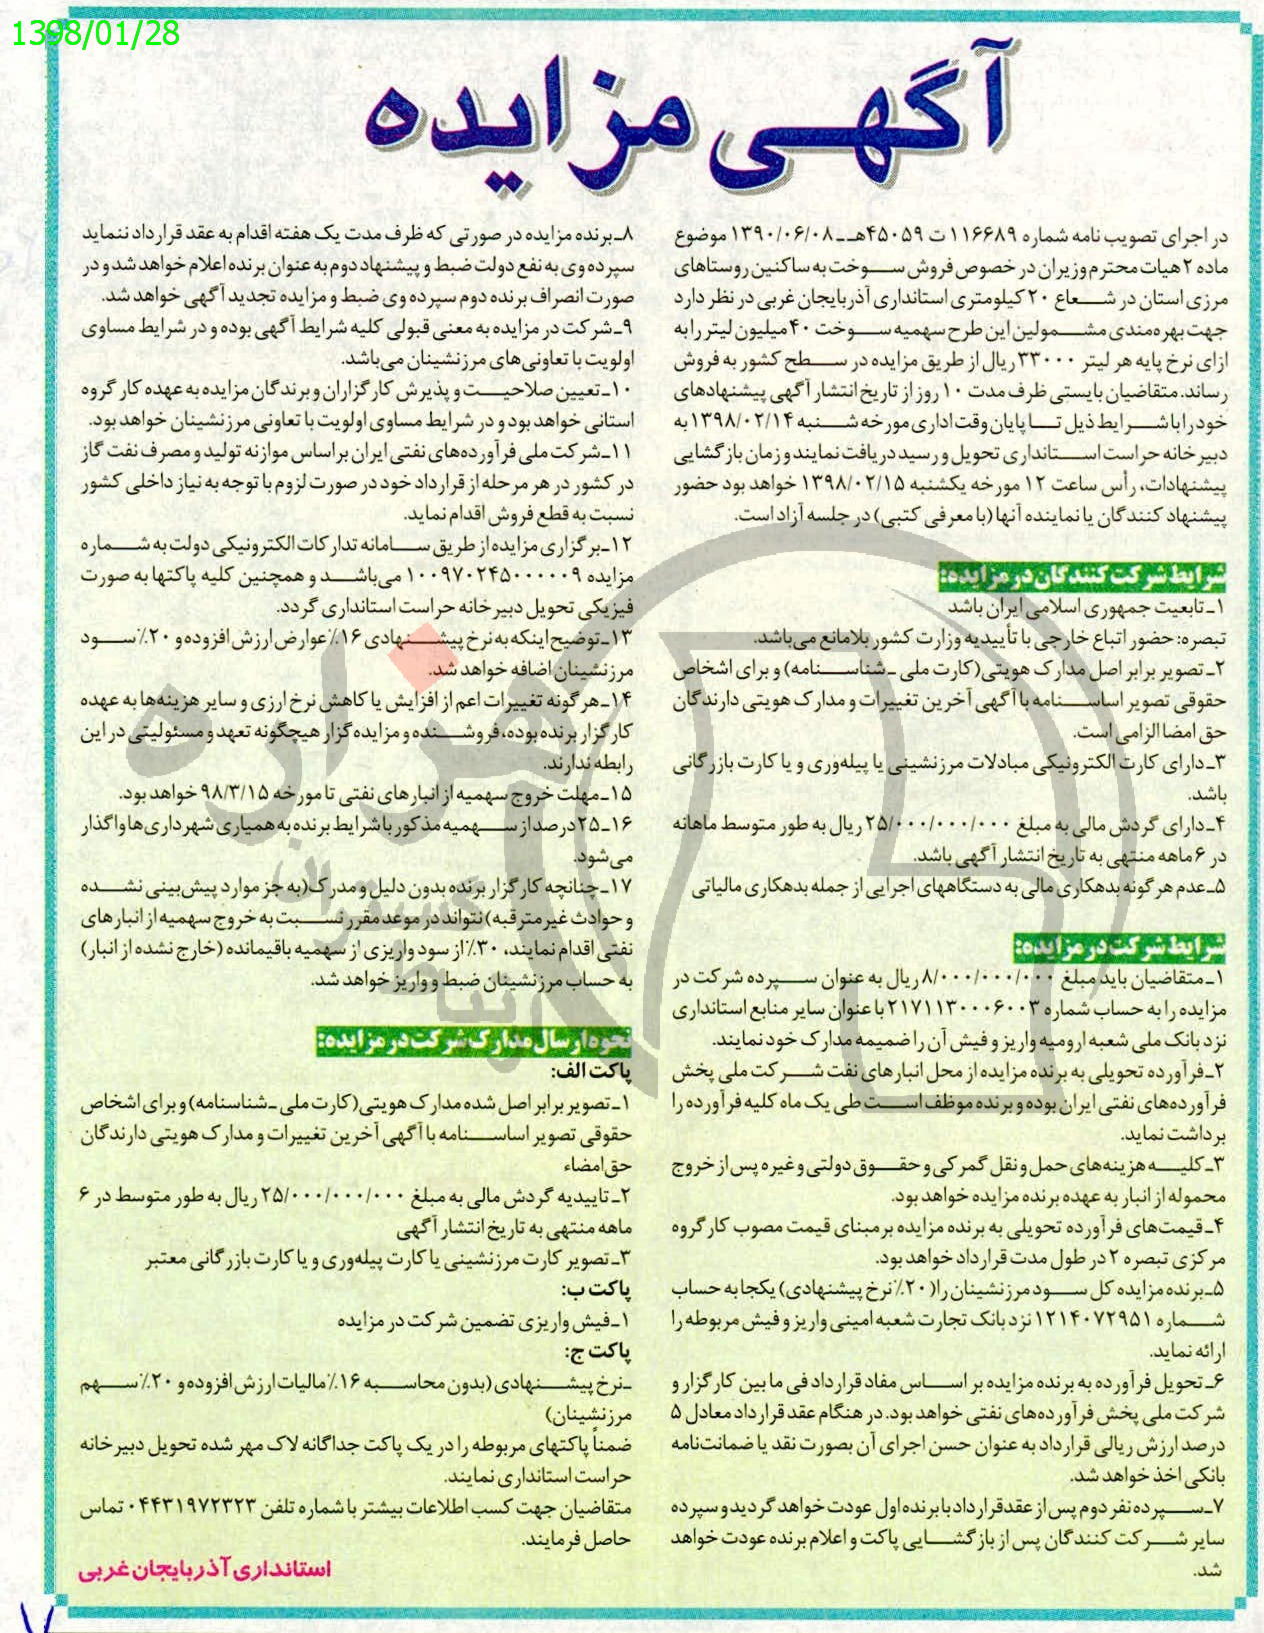 1398/01/28
آگهی مزایده
در اجرای تصویب نامه شماره ۱۱۶۶۸۹ ت ۴۵۰۵۹هـ ـ ۱۳۹۰/۰۶/۰۸ موضوع
ماده ۲ هیات محترم وزیران در خصوص فروش سوخت به ساکنین روستاهای
مرزی استان در شعاع ۲۰ کیلومتری استانداری آذربایجان غربی در نظر دارد
جهت بهره‌مندی مشمولین این طرح سهمیه سوخت ۴۰ میلیون لیتر را به
ازای نرخ پایه هر لیتر ۳۳۰۰۰ ریال از طریق مزایده در سطح کشور به فروش
رساند. متقاضیان بایستی ظرف مدت ۱۰ روز از تاریخ انتشار آگهی پیشنهادهای
خود را با شرایط ذیل تا پایان وقت اداری مورخه شنبه ۱۳۹۸/۰۲/۱۴ به
دبیرخانه حراست استانداری تحویل و رسید دریافت نمایند و زمان بازگشایی
پیشنهادات، رأس ساعت ۱۲ مورخه یکشنبه ۱۳۹۸/۰۲/۱۵ خواهد بود حضور
پیشنهاد کنندگان یا نماینده آنها (با معرفی کتبی) در جلسه آزاد است.
شرایط شرکت کنندگان در مزایده:
۱ـ تابعیت جمهوری اسلامی ایران باشد
تبصره: حضور اتباع خارجی با تأییدیه وزارت کشور بلامانع می‌باشد.
۲ـ تصویر برابر اصل مدارک هویتی (کارت ملی ـ شناسنامه) و برای اشخاص
حقوقی تصویر اساسنامه با آگهی آخرین تغییرات و مدارک هویتی دارندگان
حق امضا الزامی است.
۳ـ دارای کارت الکترونیکی مبادلات مرزنشینی یا پیله‌وری و یا کارت بازرگانی
باشد.
۴ـ دارای گردش مالی به مبلغ ۲۵/۰۰۰/۰۰۰/۰۰۰ ریال به طور متوسط ماهانه
در ۶ ماهه منتهی به تاریخ انتشار آگهی باشد.
۵ـ عدم هر گونه بدهکاری مالی به دستگاههای اجرایی از جمله بدهکاری مالیاتی
شرایط شرکت در مزایده:
۱ـ متقاضیان باید مبلغ ۸/۰۰۰/۰۰۰/۰۰۰ ریال به عنوان سپرده شرکت در
مزایده را به حساب شماره ۲۱۷۱۱۳۰۰۰۶۰۰۳ با عنوان سایر منابع استانداری
نزد بانک ملی شعبه ارومیه واریز و فیش آن را ضمیمه مدارک خود نمایند.
۲ـ فرآورده تحویلی به برنده مزایده از محل انبارهای نفت شرکت ملی پخش
فرآورده‌های نفتی ایران بوده و برنده موظف است طی یک ماه کلیه فرآورده را
برداشت نماید.
۳ـ کلیه هزینه‌های حمل و نقل گمرکی و حقوق دولتی و غیره پس از خروج
محموله از انبار به عهده برنده مزایده خواهد بود.
۴ـ قیمت‌های فرآورده تحویلی به برنده مزایده بر مبنای قیمت مصوب کارگروه
مرکزی تبصره ۲ در طول مدت قرارداد خواهد بود.
۵ـ برنده مزایده کل سود مرزنشینان را (۲۰٪ نرخ پیشنهادی) یکجا به حساب
شماره ۱۲۱۴۰۷۲۹۵۱ نزد بانک تجارت شعبه امینی واریز و فیش مربوطه را
ارائه نماید.
۶ـ تحویل فرآورده به برنده مزایده بر اساس مفاد قرارداد فی ما بین کارگزار و
شرکت ملی پخش فرآورده‌های نفتی خواهد بود. در هنگام عقد قرارداد معادل ۵
درصد ارزش ریالی قرارداد به عنوان حسن اجرای آن بصورت نقد یا ضمانت‌نامه
بانکی اخذ خواهد شد.
۷ـ سپرده نفر دوم پس از عقد قرارداد با برنده اول عودت خواهد گردید و سپرده
سایر شرکت کنندگان پس از بازگشایی پاکت و اعلام برنده عودت خواهد
شد.
۸ـ برنده مزایده در صورتی که ظرف مدت یک هفته اقدام به عقد قرارداد ننماید
سپرده وی به نفع دولت ضبط و پیشنهاد دوم به عنوان برنده اعلام خواهد شد و در
صورت انصراف برنده دوم سپرده وی ضبط و مزایده تجدید آگهی خواهد شد.
۹ـ شرکت در مزایده به معنی قبولی کلیه شرایط آگهی بوده و در شرایط مساوی
اولویت با تعاونی‌های مرزنشینان می‌باشد.
۱۰ـ تعیین صلاحیت و پذیرش کارگزاران و برندگان مزایده به عهده کارگروه
استانی خواهد بود و در شرایط مساوی اولویت با تعاونی مرزنشینان خواهد بود.
۱۱ـ شرکت ملی فرآورده‌های نفتی ایران بر اساس موازنه تولید و مصرف نفت گاز
در کشور در هر مرحله از قرارداد خود در صورت لزوم با توجه به نیاز داخلی کشور
نسبت به قطع فروش اقدام نماید.
۱۲ـ برگزاری مزایده از طریق سامانه تدارکات الکترونیکی دولت به شماره
مزایده ۱۰۰۹۷۰۲۴۵۰۰۰۰۰۹ می‌باشد و همچنین کلیه پاکتها به صورت
فیزیکی تحویل دبیرخانه حراست استانداری گردد.
۱۳ـ توضیح اینکه به نرخ پیشنهادی ۱۶٪ عوارض ارزش افزوده و ۲۰٪ سود
مرزنشینان اضافه خواهد شد.
۱۴ـ هر گونه تغییرات اعم از افزایش یا کاهش نرخ ارزی و سایر هزینه‌ها به عهده
کارگزار برنده بوده، فروشنده و مزایده گزار هیچگونه تعهد و مسئولیتی در این
رابطه ندارند.
۱۵ـ مهلت خروج سهمیه از انبارهای نفتی تا مورخه ۹۸/۳/۱۵ خواهد بود.
۱۶ـ ۲۵ درصد از سهمیه مذکور با شرایط برنده به همیاری شهرداری‌ها واگذار
می‌شود.
۱۷ـ چنانچه کارگزار برنده بدون دلیل و مدرک (به جز موارد پیش‌بینی نشده
و حوادث غیرمترقبه) نتواند در موعد مقرر نسبت به خروج سهمیه از انبارهای
نفتی اقدام نمایند، ۳۰٪ از سود واریزی از سهمیه باقیمانده (خارج نشده از انبار)
به حساب مرزنشینان ضبط و واریز خواهد شد.
نحوه ارسال مدارک شرکت در مزایده:
پاکت الف:
۱ـ تصویر برابر اصل شده مدارک هویتی (کارت ملی ـ شناسنامه) و برای اشخاص
حقوقی تصویر اساسنامه با آگهی آخرین تغییرات و مدارک هویتی دارندگان
حق امضاء
۲ـ تاییدیه گردش مالی به مبلغ ۲۵/۰۰۰/۰۰۰/۰۰۰ ریال به طور متوسط در ۶
ماهه منتهی به تاریخ انتشار آگهی
۳ـ تصویر کارت مرزنشینی یا کارت پیله‌وری و یا کارت بازرگانی معتبر
پاکت ب:
۱ـ فیش واریزی تضمین شرکت در مزایده
پاکت ج:
ـ نرخ پیشنهادی (بدون محاسبه ۱۶٪ مالیات ارزش افزوده و ۲۰٪ سهم
مرزنشینان)
ضمناً پاکتهای مربوطه را در یک پاکت جداگانه لاک مهر شده تحویل دبیرخانه
حراست استانداری نمایند.
متقاضیان جهت کسب اطلاعات بیشتر با شماره تلفن ۰۴۴۳۱۹۷۲۳۲۳ تماس
حاصل فرمایند.
استانداری آذربایجان غربی